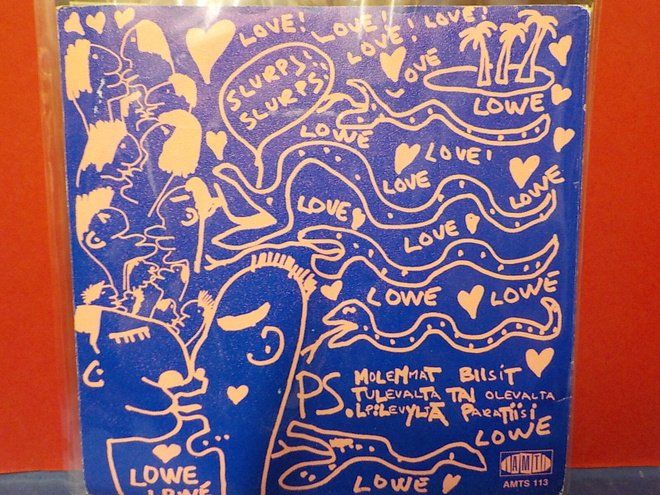 LOVE! LOVE! LOVE!
LOVE!
LOVE
SLURPS!
SLURPS!
LOWE
LOWE
LOVE!
LOVE
LOWE
LOVE
LOVE
LOWE
LOWE
PS. MOLEMMAT BIISIT
TULEVALTA TAI OLEVALTA
LP:LEVYLTÄ PARATIISI
LOWE
AMT
AMTS 113
LOWE
LOWE
LOWE